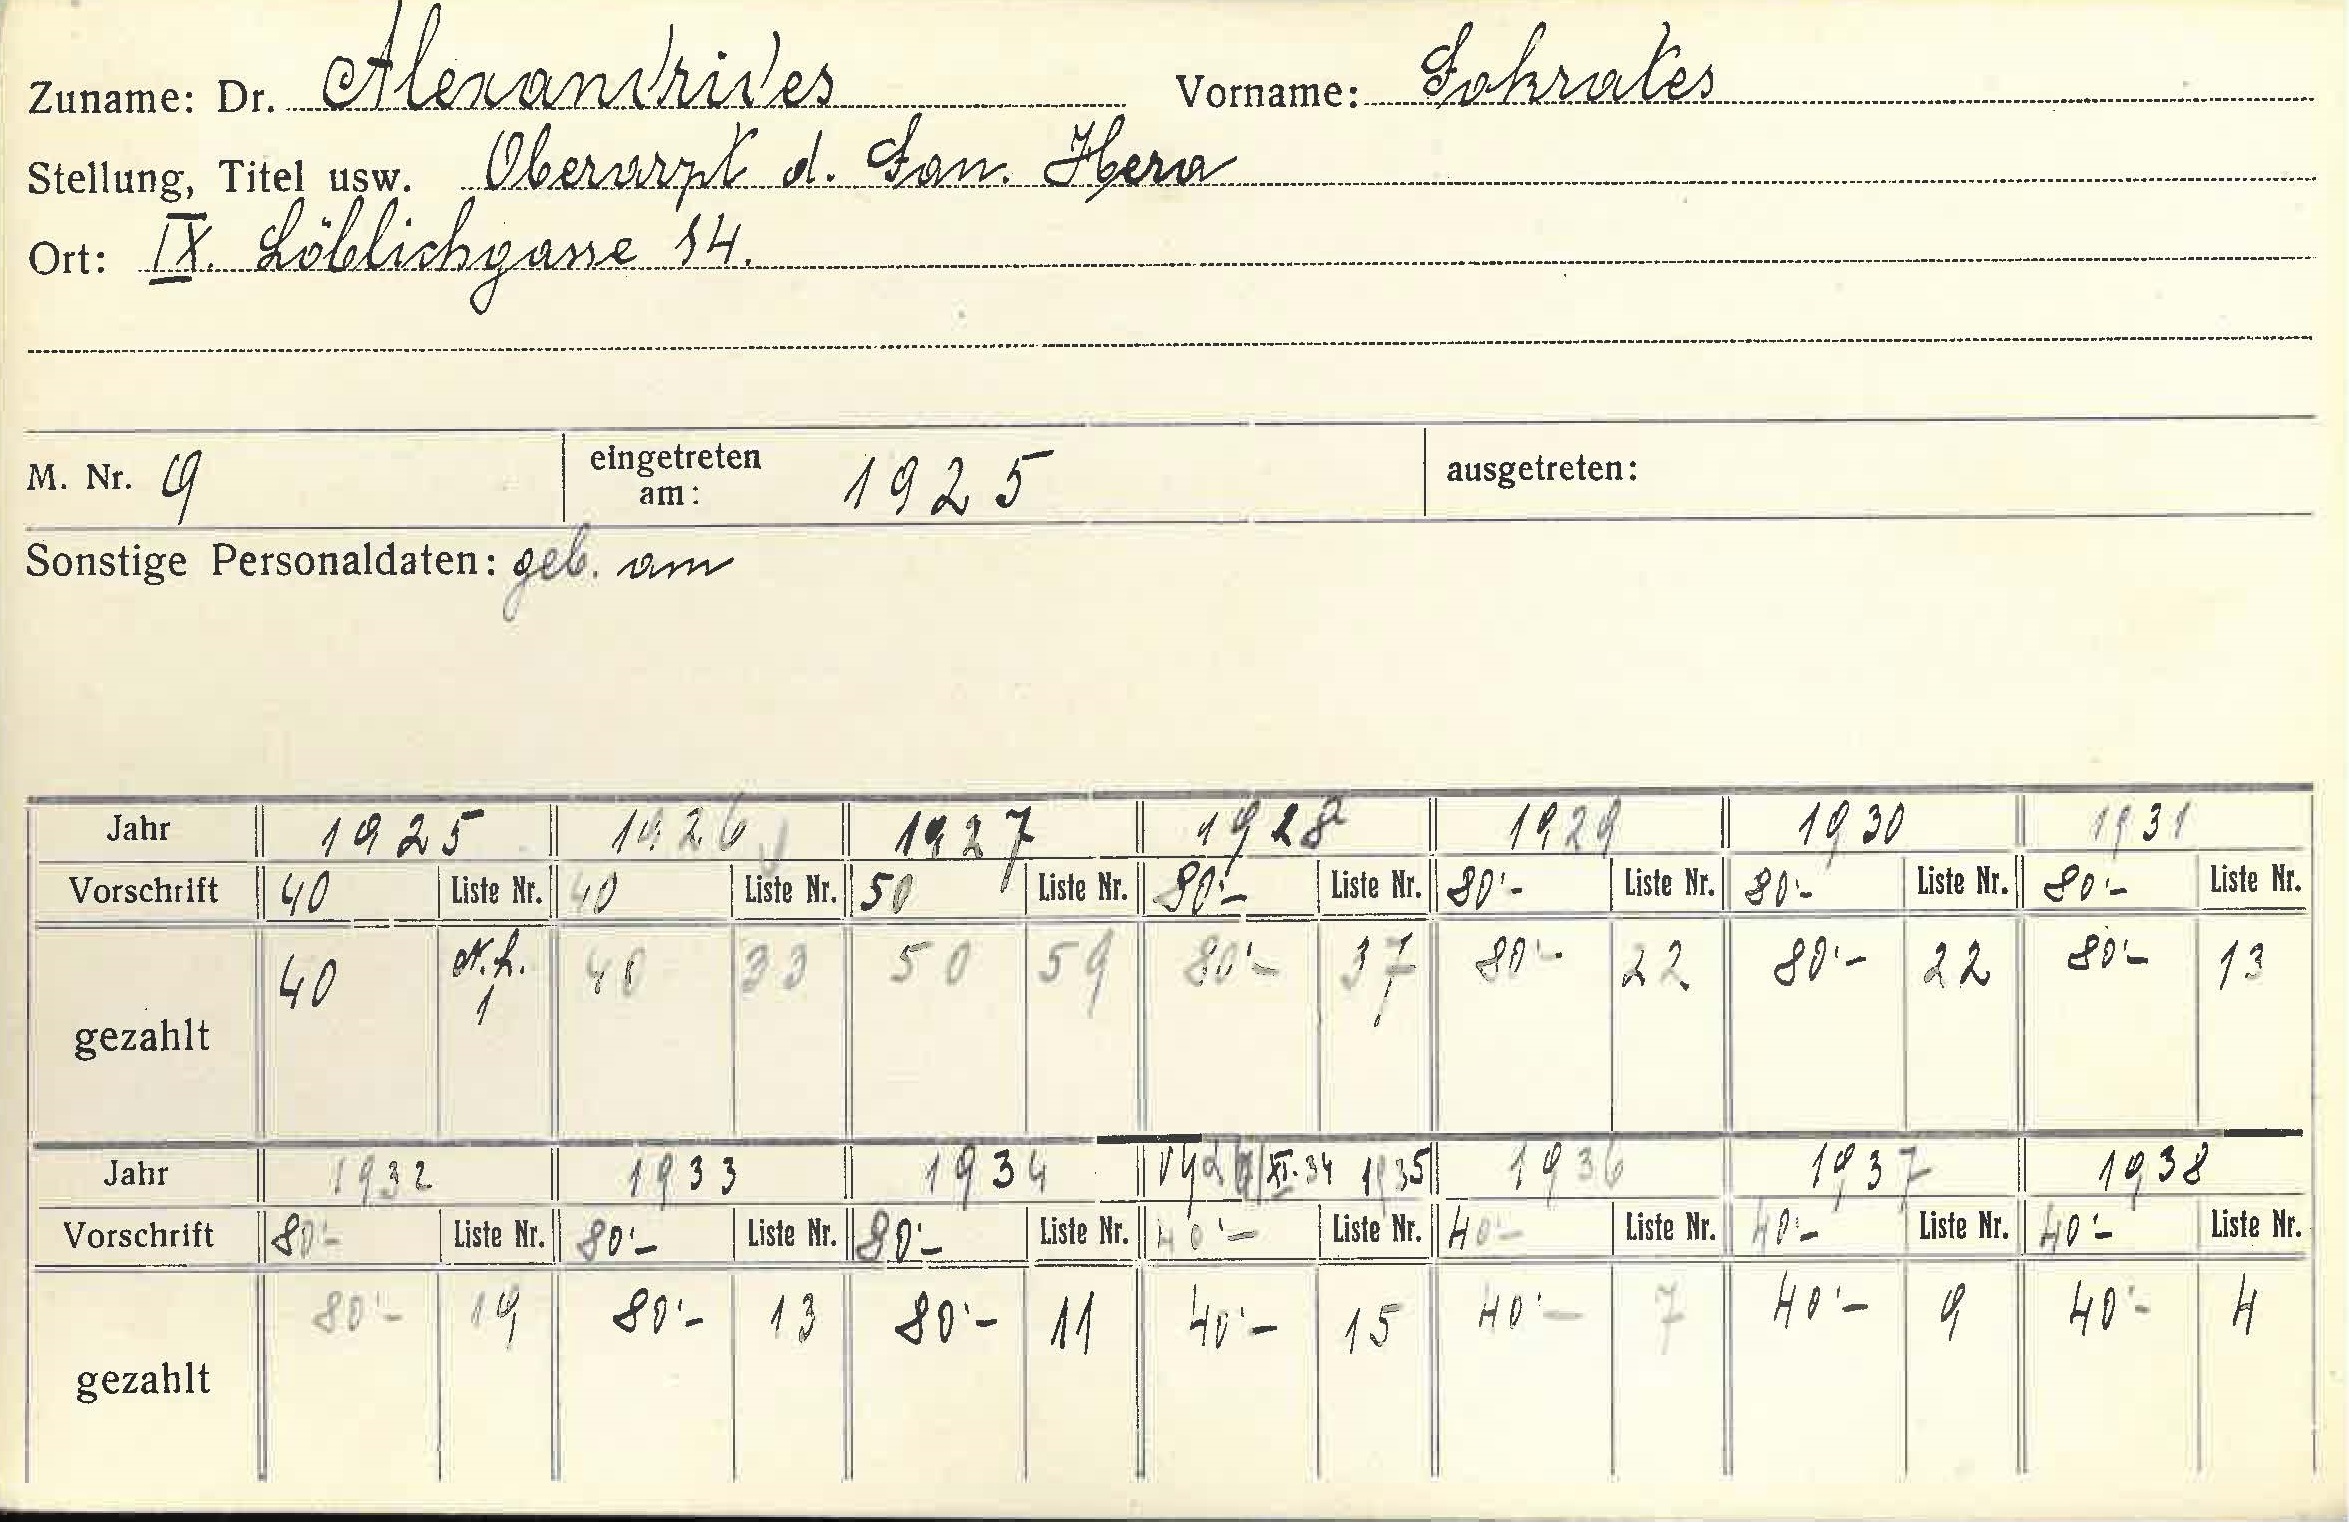 Zuname: Dr. Alexandrides Vorname: Sokrates
Stellung, Titel usw. Oberarzt d. San. Hera
Ort: IX. Löblichgasse 14.
M. Nr. 9 eingetreten am: 1925 ausgetreten:
Sonstige Personaldaten: geb. am
Jahr 1925 1926 1927 1928 1929 1930 1931
Vorschrift 40 Liste Nr. 40 Liste Nr. 50 Liste Nr. 80'- Liste Nr. 80'- Liste Nr. 80'- Liste Nr. 80'- Liste Nr.
gezahlt 40 N.L. 1 40 33 50 59 80'- 37 80'- 22 80'- 22 80'- 13
Jahr 1932 1933 1934 XI.34 1935 1936 1937 1938
Vorschrift 80'- Liste Nr. 80'- Liste Nr. 80'- Liste Nr. 40'- Liste Nr. 40'- Liste Nr. 40'- Liste Nr. 40'- Liste Nr.
gezahlt 80'- 19 80'- 13 80'- 11 40'- 15 40'- 7 40'- 9 40'- 4